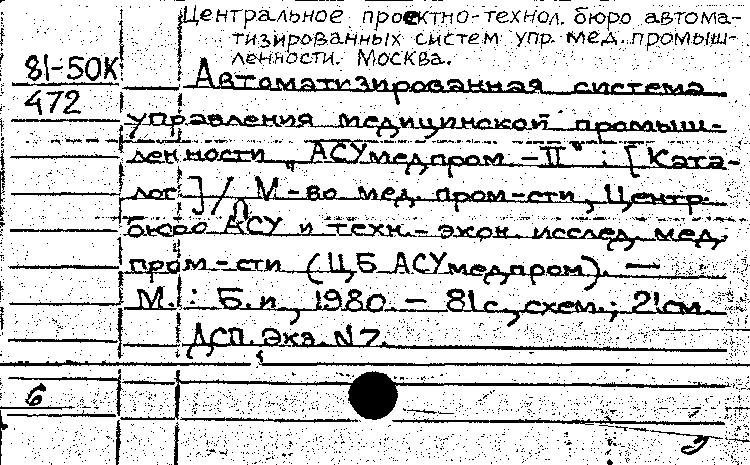 Центральное проектно-технол. бюро автома-
тизированных систем упр. мед. промыш-
ленности. Москва.
81-50К Автоматизированная система
472
управления медицинской промыш-
ленности „АСУмедпром-II": [Ката-
лог] / М-во мед. пром-сти, Центр.
бюро АСУ и техн.-экон. исслед. мед.
пром-сти (ЦБ АСУмедпром). —
М.: Б.и., 1980. - 81с., схем.; 21см.
ДСП. Экз. N7.
6